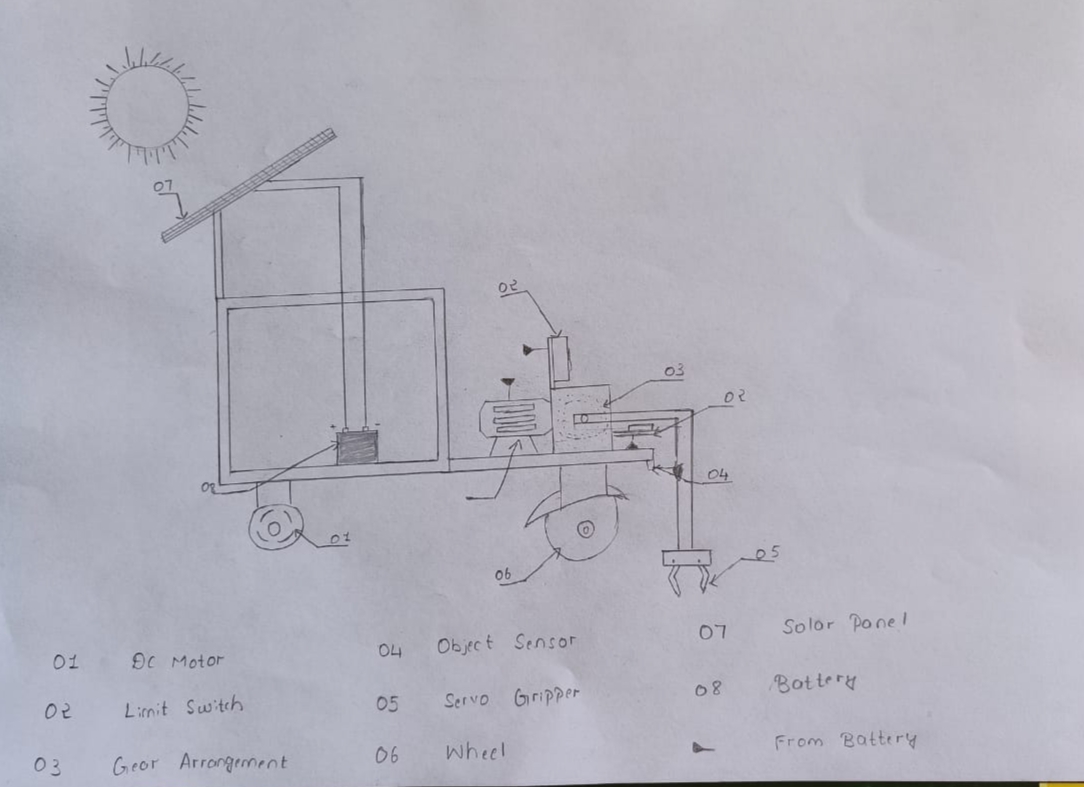 07
02
03
02
+ -
04
08
01
05
06
01 DC Motor
02 Limit Switch
03 Gear Arrangement
04 Object Sensor
05 Servo Gripper
06 Wheel
07 Solar Panel
08 Battery
From Battery